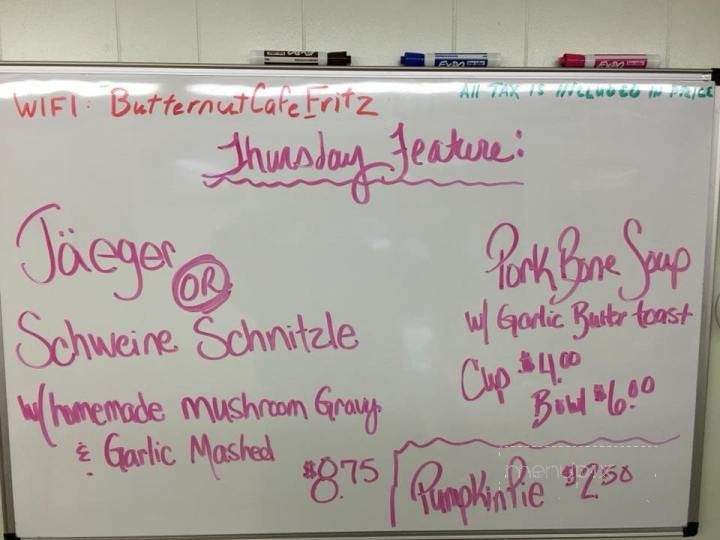 WIFI: ButternutCafeFritz
All TAX IS INCLUDED IN PRICE
Thursday Feature:
Jäeger OR
Schweine Schnitzle
w/homemade mushroom Gravy
& Garlic Mashed
$8.75
Pork Bone Soup
w/ Garlic Butter toast
Cup $4.00
Bowl $6.00
Pumpkin Pie $2.50
EXPO
EXPO